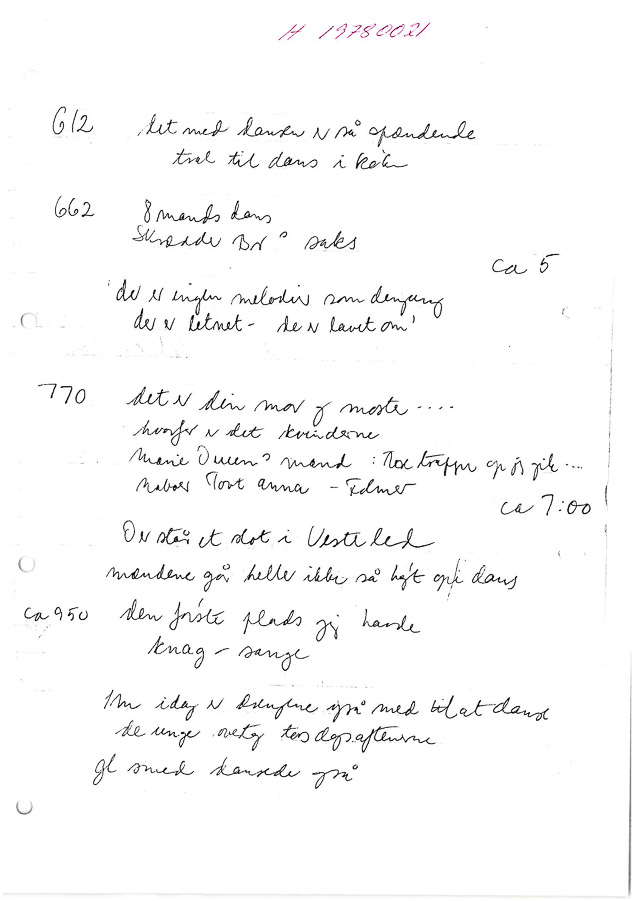 H 19780021
612 det med dansen er så spændende
træl til dans i
662 8 mands dans
Skrædder saks
ca 5
'der er ingen melodier som dengang
der er letnet - de er lavet om'
770 det er din mor og moster ....
hvorfor er det kvinderne
Marie mand : trapper op jeg gik ...
naboer Tovt Anna -
ca 7:00
Der står et slot i Vesterled
mændene går heller ikke så højt op i dans
ca 950 den første plads jeg havde
knag - sange
Men idag er drengene også med til at danse
de unge overtog torsdagsaftenerne
gl smed dansede også